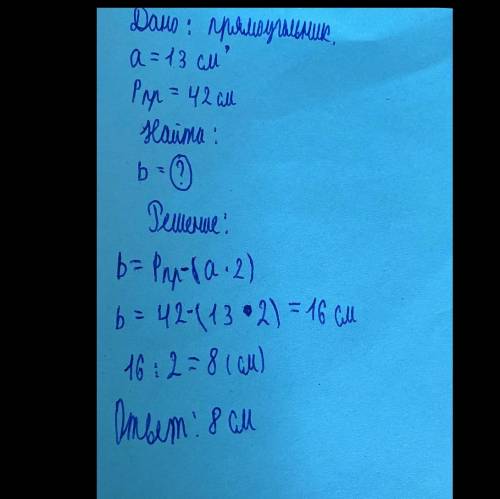 Дано: прямоугольник.
a = 13 см
Pпр = 42 см
Найти:
b = ?
Решение:
b = Pпр-(a · 2)
b = 42-(13 · 2) = 16 см
16 : 2 = 8 (см)
Ответ: 8 см